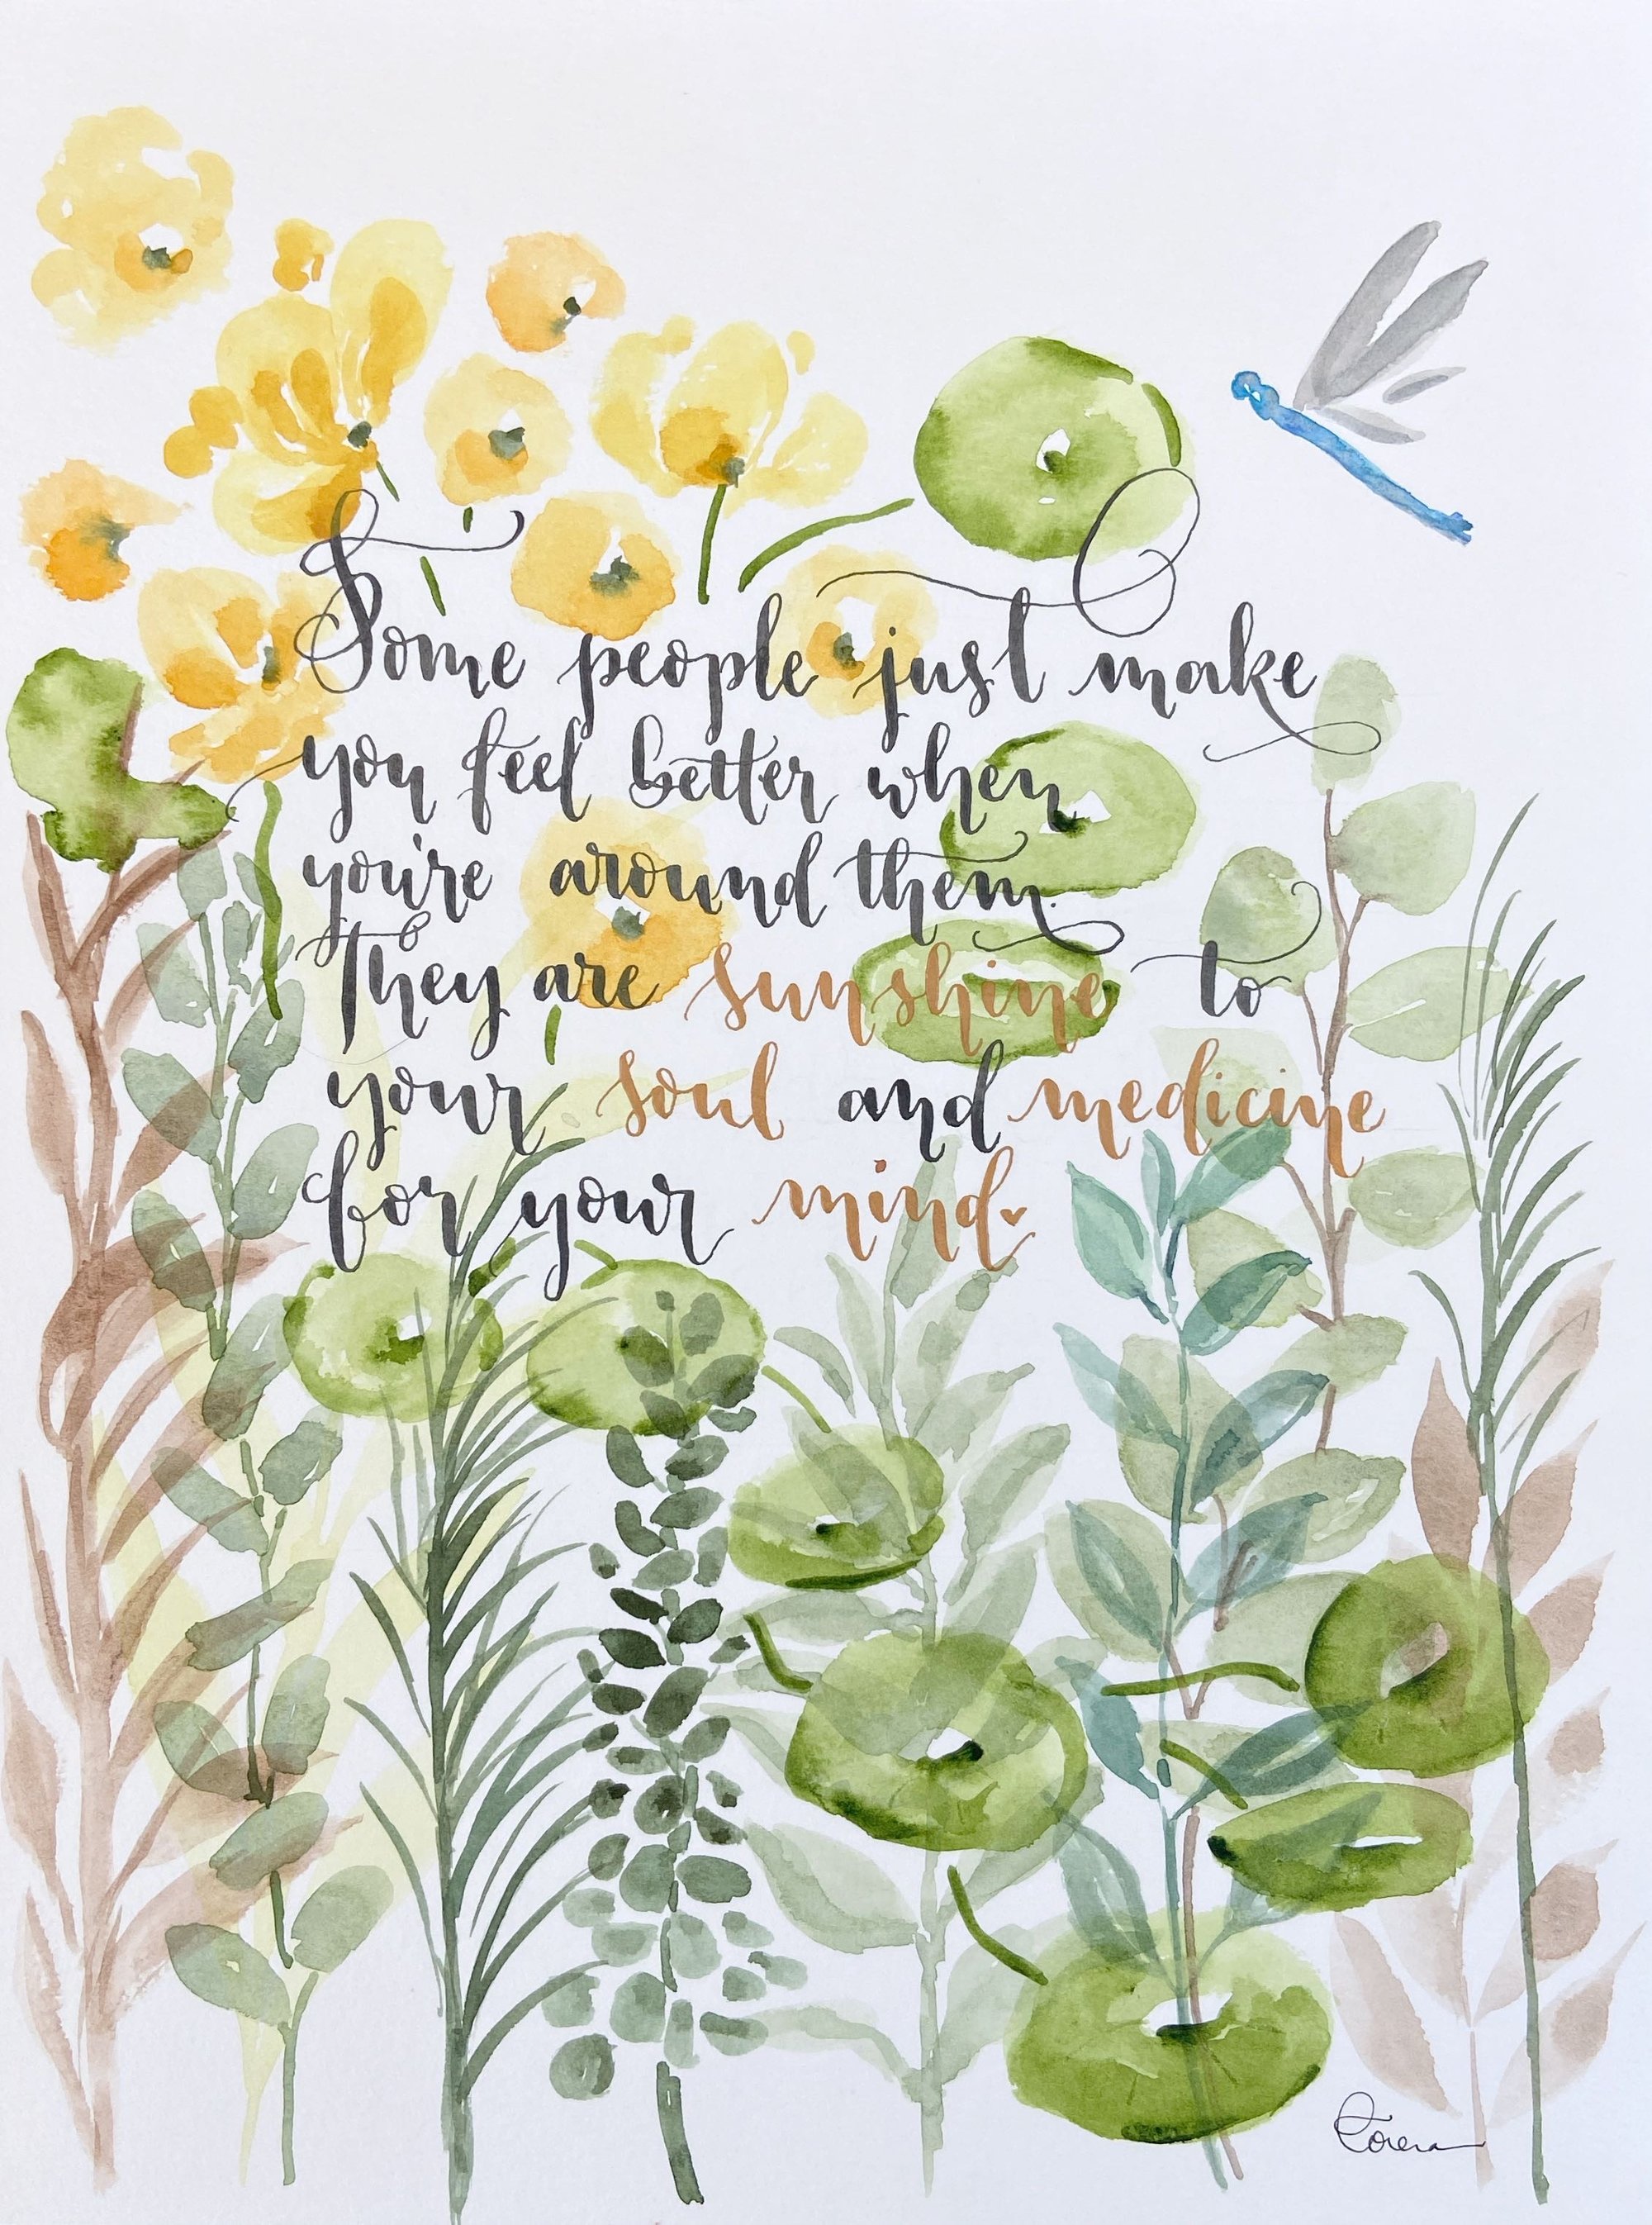 Some people just make
you feel better when
you're around them.
They are sunshine to
your soul and medicine
for your mind